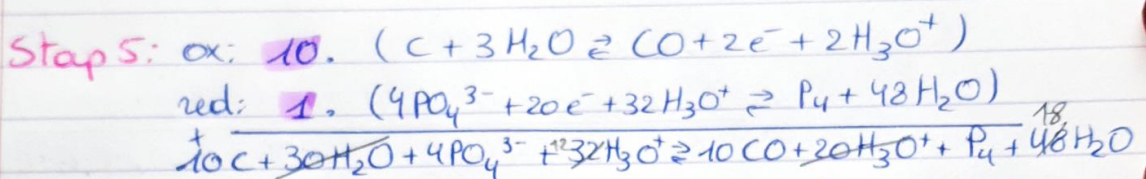 Stap 5: ox: 10. (C + 3 H₂O ⇄ CO + 2e⁻ + 2H₃O⁺)
red: 1. (4PO₄³⁻ + 20e⁻ + 32H₃O⁺ ⇄ P₄ + 48H₂O)
+
10C + 30H₂O + 4PO₄³⁻ + ¹²32H₃O⁺ ⇄ 10CO + 20H₃O⁺ + P₄ + 48 18 H₂O